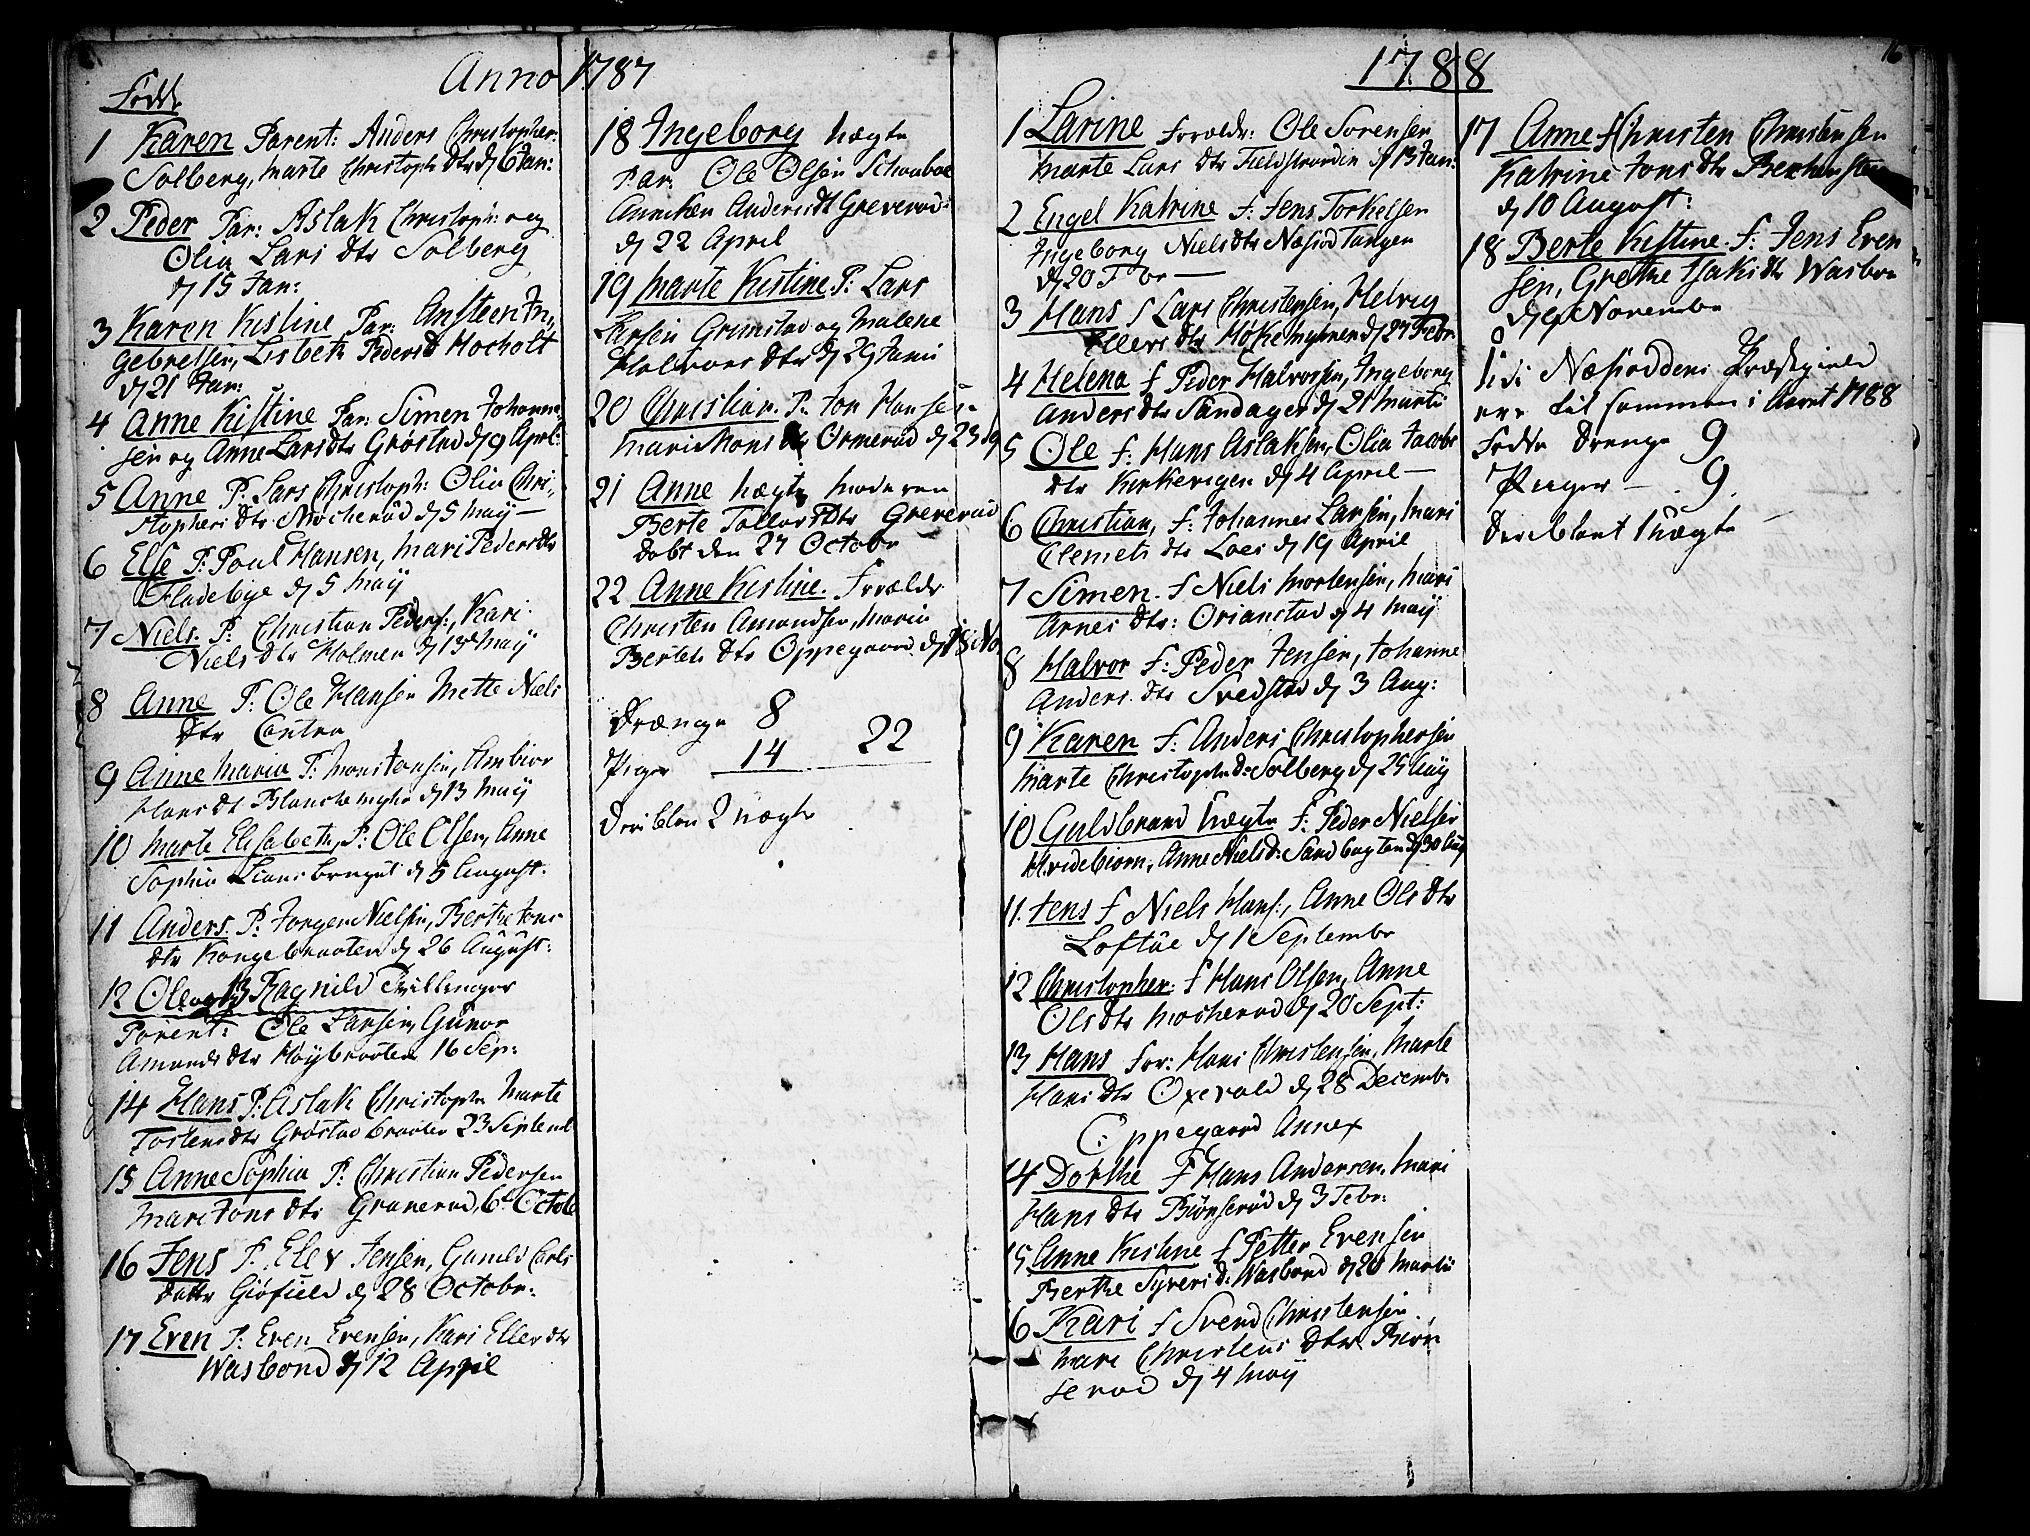 Anno 1787
Födt.
1 Karen Parent: Anders Christopher:
Solberg, Marte Christoph dtr d 6 Jan:
2 Peder Par: Aslak Christoph: og
Olia Lars dtr Solberg
d 15 Jan:
3 Karen Kistine Par: Ansteen In,
gebretsen, Lisbeth Pedersd Hocholt
d 21 Jan:
4 Anne Kistine Par: Simen Johanne,
sen og Anne Larsdtr Gröstad d 9 April:
5 Anne P: Lars Christoph: Olia Chri,
stophers dtr Mocherud d 5 May —
6 Else P: Poul Hansen, Mari Peders dtr
Fladebye d 5 Maij
7 Niels. P: Christian Peders:, Kari
Niels dtr Holmen d 13 Maij
8 Anne P: Ole Hansen Mette Niels
dtr Contra
9 Anne Maria P: Mons Jonsen, Ambior
Hans dt d 13 Maij
10 Marte Elisabeth, P: Ole Olsen, Anne
Sophia d 5 August.
11 Anders. P: Jorgen Nielsen, Berthe Jons
dtr Kongebraaten d 26 August:
12 Ole og 13 Ragnild Tvillinger
Parent: Ole Larsen, Gunor
Amunds dtr Höybraaten 16 Sep:
14 Hans P: Aslak Christoph Marte
Torstensdtr Gröstad braaten 23 Septemb
15 Anne Sophia P: Christian Pedersen
Mari Jons dtr Graverud, 6 Octob
16 Jens P. Elev Jensen, Gunild Carls
datter Giöfield d 28 Octobr:
17 Even P: Even Evensen, Kari Ellev dtr
Wasbond d 12 April
18 Ingeborg uægte
Par: Ole Olsen
Anniken Andersdt Greverud
d 22 April
19 Marte Kistine P: Lars
Larsen Grimstad og Malene
Halvors dtr d 29 Junii
20 Christian. P: Jon Hansen
Mari Mons dtr Ormerud d 23
21 Anne uægte Moderen
Berte Tollefs dtr Greverud
döbt den 27 Octobr
22 Anne Kistine. Forældr
Christen Amundsen, Maria
Bertels dtr Oppegaard d 18 No
Drænge 8
Piger 14 22
Deriblan 2 uægte
16
1788
1 Larine Forældr: Ole Sorensen
Marte Lars dtr Fieldstranden d 13 Jan:
2 Engel Katrine f: Jens Torkelsen
Ingeborg Nielsdtr Næsod Tangen
d 20 Fbr —
3 Hans f Lars Christensen, Helvig
Ellevs dtr d 27 Febr
4 Helena f Peder Halvorsen, Ingeborg
Anders dtr Sandager d 21 Marti
5 Ole f: Hans Aslaksen, Olia Jacobs
dtr Kirkevigen d 4 April —
6 Christian, f: Johannes Larsen, Mari
Clemets dtr Loes d 19 April
7 Simen. f Niels Mortensen, Mari
Arnes dtr: d 4 Maij
8 Halvor f: Peder Jensen, Johanne
Anders. dtr Svedstad d 3 Aug:
9 Karen f: Anders Christophersen
Marte Christophr d: Solberg d 25 Maij
10 Guldbrand uægte f: Peder Nielsen
Hvidebiorn, Anne Niels d: Sand bugten d 30 Aug
11. Jens f Niels Hans:, Anne Ols dtr
Loftue d 1 Septembr
12 Christopher: f Hans Olsen, Anne
Ols dtr Mocherud d 20 Sept:
13 Hans For: Hans Christensen, Marte
Hans dtr Oxevald d 28 Decemb.
Oppegaard Annex
14 Dorthe f Hans Andersen, Mari
Hans dtr Biönserud d 3 Febr:
15 Anne Kistine f Petter Evensen
Berthe Syvers d: Wasbond d 20 Martii
6 Kari f Svend Christensen
Mari Christens dtr Biön
serud d 4 Maij
17 Anne f Christen Christensen
Katrine Jons dtr
d 10 August:
18 Berte Kistine f: Jens Even
sen, Grethe Isaks dtr Wasbon
d 9 Novembr
I Næsoddens Præstegield
ere til sammen i Aaret 1788
födte Drenge 9
Piger — 9
Deriblant 1 uægte —